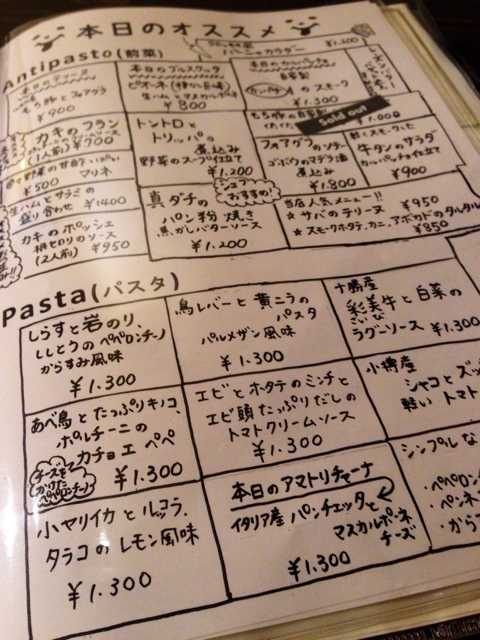 本日のオススメ
Antipasto(前菜)
もち豚とフォアグラ
¥900
本日のブルスケッタ
生ハムとマスカルポーネ
¥800
バーニャカウダー
¥1.200
自家製
のスモーク
¥1.300
Sold out
¥1.000
カキのフラン
(1人前) ¥700
¥500
マリネ
生ハムとサラミの
盛り合わせ ¥1400
カキのポッシェ
根セロリのソース
(2人前) ¥950
トントロと
トリッパの
煮込み
野菜のスープ仕立て
¥1.200
シェフの
おすすめ!
真ダチの
パン粉焼き
焦がしバターソース
¥1.200
フォアグラのソテー
ゴボウのマデラ酒
煮込み
¥1.800
軽くスモークした
牛タンのサラダ
カルパッチョ仕立て
¥900
当店人気メニュー!!
★ サバのテリーヌ ¥950
★ スモークホタテ、カニ、アボカドのタルタル
¥850
Pasta(パスタ)
しらすと岩のり、
ししとうのペペロンチーノ
からすみ風味
¥1.300
鳥レバーと黄ニラの
パスタ
パルメザン風味
¥1.300
十勝産
彩美牛と白菜の
ラグーソース
¥1.300
あべ鳥とたっぷりキノコ、
ポルチーニの
カチョエペペ
¥1.300
チーズを
かけた
ペペロンチーノ
エビとホタテのミンチと
エビ頭たっぷりだしの
トマトクリームソース
¥1.300
小樽産
シャコとズッ
軽いトマト
小ヤリイカとルッコラ、
タラコのレモン風味
¥1.300
本日のアマトリチャーナ
イタリア産パンチェッタと
マスカルポーネ
チーズ
¥1.300
シンプルな
・ペペロン
・ペンネ
・から